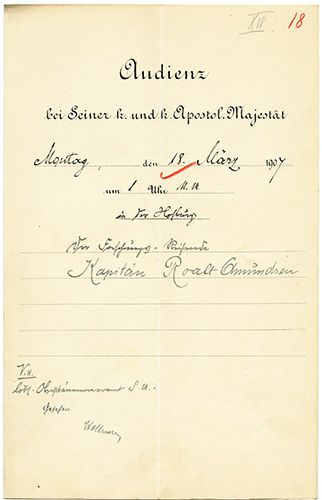 XII 18
Audienz
bei Seiner k. und k. Apostol. Majestät
Montag, den 18. März 1907
um 1 Uhr N. M.
in der Hofburg
Der Forschungs-Reisende
Kapitän Roalt Amundsen
V. a.
löbl. Obersthämmereramt S. M.
Gesehen